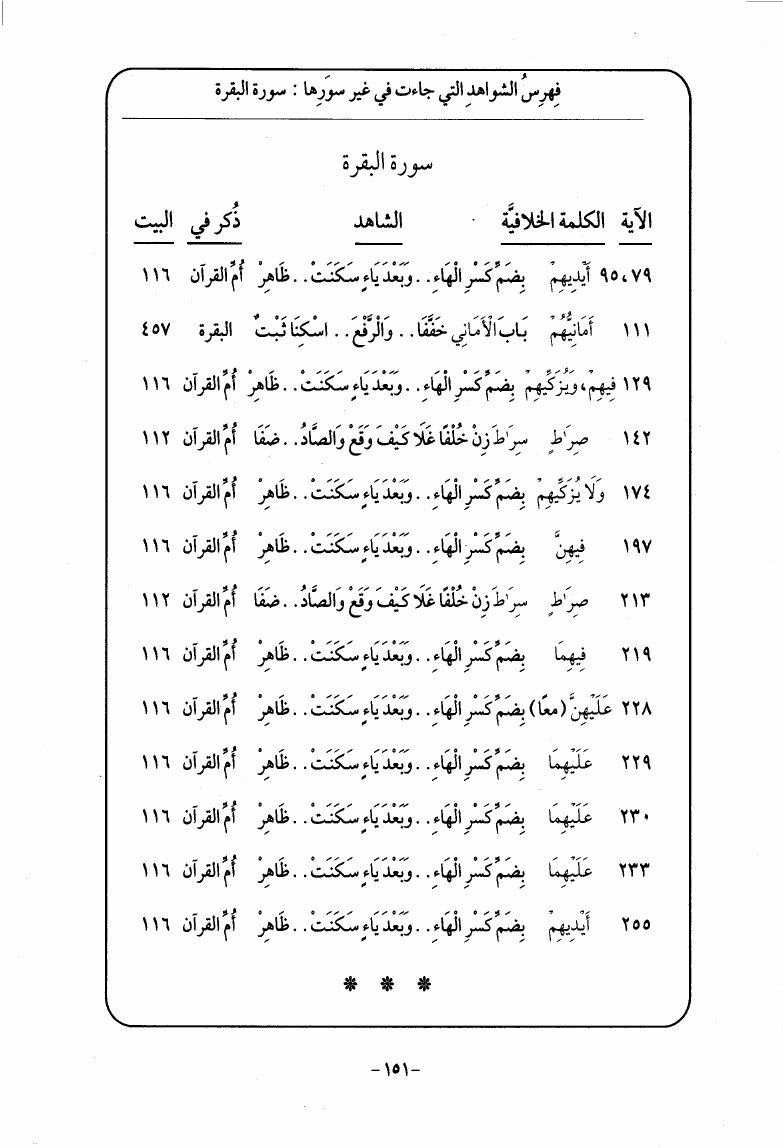 فِهرِسُ الشواهدِ التي جاءت في غير سوَرِها : سورة البقرة
سورة البقرة
الآية الكلمة الخلافيَّة الشاهد ذُكر في البيت
٧٩، ٩٥ أَيْدِيهِمْ بِضَمِّ كَسْرِ الْهَاءِ.. وَبَعْدَ يَاءٍ سَكَنَتْ.. ظَاهِرْ أُمِّ القرآن ١١٦
١١١ أَمَانِيُّهُمْ بَابَ الْأَمَانِي خَفَّفَا.. وَالْرَّفْعَ.. اسْكِنَا ثَبْتٌ البقرة ٤٥٧
١٢٩ فِيهِمْ، وَيُزَكِّيهِمْ بِضَمِّ كَسْرِ الْهَاءِ.. وَبَعْدَ يَاءٍ سَكَنَتْ.. ظَاهِرْ أُمِّ القرآن ١١٦
١٤٢ صِرَٰطٍ سِرَٰطَ زِنْ خُلْفًا غَلَا كَيْفَ وَقَعْ وَالصَّادُ.. ضَفَا أُمِّ القرآن ١١٢
١٧٤ وَلَا يُزَكِّيهِمْ بِضَمِّ كَسْرِ الْهَاءِ.. وَبَعْدَ يَاءٍ سَكَنَتْ.. ظَاهِرْ أُمِّ القرآن ١١٦
١٩٧ فِيهِنَّ بِضَمِّ كَسْرِ الْهَاءِ.. وَبَعْدَ يَاءٍ سَكَنَتْ.. ظَاهِرْ أُمِّ القرآن ١١٦
٢١٣ صِرَٰطٍ سِرَٰطَ زِنْ خُلْفًا غَلَا كَيْفَ وَقَعْ وَالصَّادُ.. ضَفَا أُمِّ القرآن ١١٢
٢١٩ فِيهِمَا بِضَمِّ كَسْرِ الْهَاءِ.. وَبَعْدَ يَاءٍ سَكَنَتْ.. ظَاهِرْ أُمِّ القرآن ١١٦
٢٢٨ عَلَيْهِنَّ (معًا) بِضَمِّ كَسْرِ الْهَاءِ.. وَبَعْدَ يَاءٍ سَكَنَتْ.. ظَاهِرْ أُمِّ القرآن ١١٦
٢٢٩ عَلَيْهِمَا بِضَمِّ كَسْرِ الْهَاءِ.. وَبَعْدَ يَاءٍ سَكَنَتْ.. ظَاهِرْ أُمِّ القرآن ١١٦
٢٣٠ عَلَيْهِمَا بِضَمِّ كَسْرِ الْهَاءِ.. وَبَعْدَ يَاءٍ سَكَنَتْ.. ظَاهِرْ أُمِّ القرآن ١١٦
٢٣٣ عَلَيْهِمَا بِضَمِّ كَسْرِ الْهَاءِ.. وَبَعْدَ يَاءٍ سَكَنَتْ.. ظَاهِرْ أُمِّ القرآن ١١٦
٢٥٥ أَيْدِيهِمْ بِضَمِّ كَسْرِ الْهَاءِ.. وَبَعْدَ يَاءٍ سَكَنَتْ.. ظَاهِرْ أُمِّ القرآن ١١٦
* * *
-١٥١-